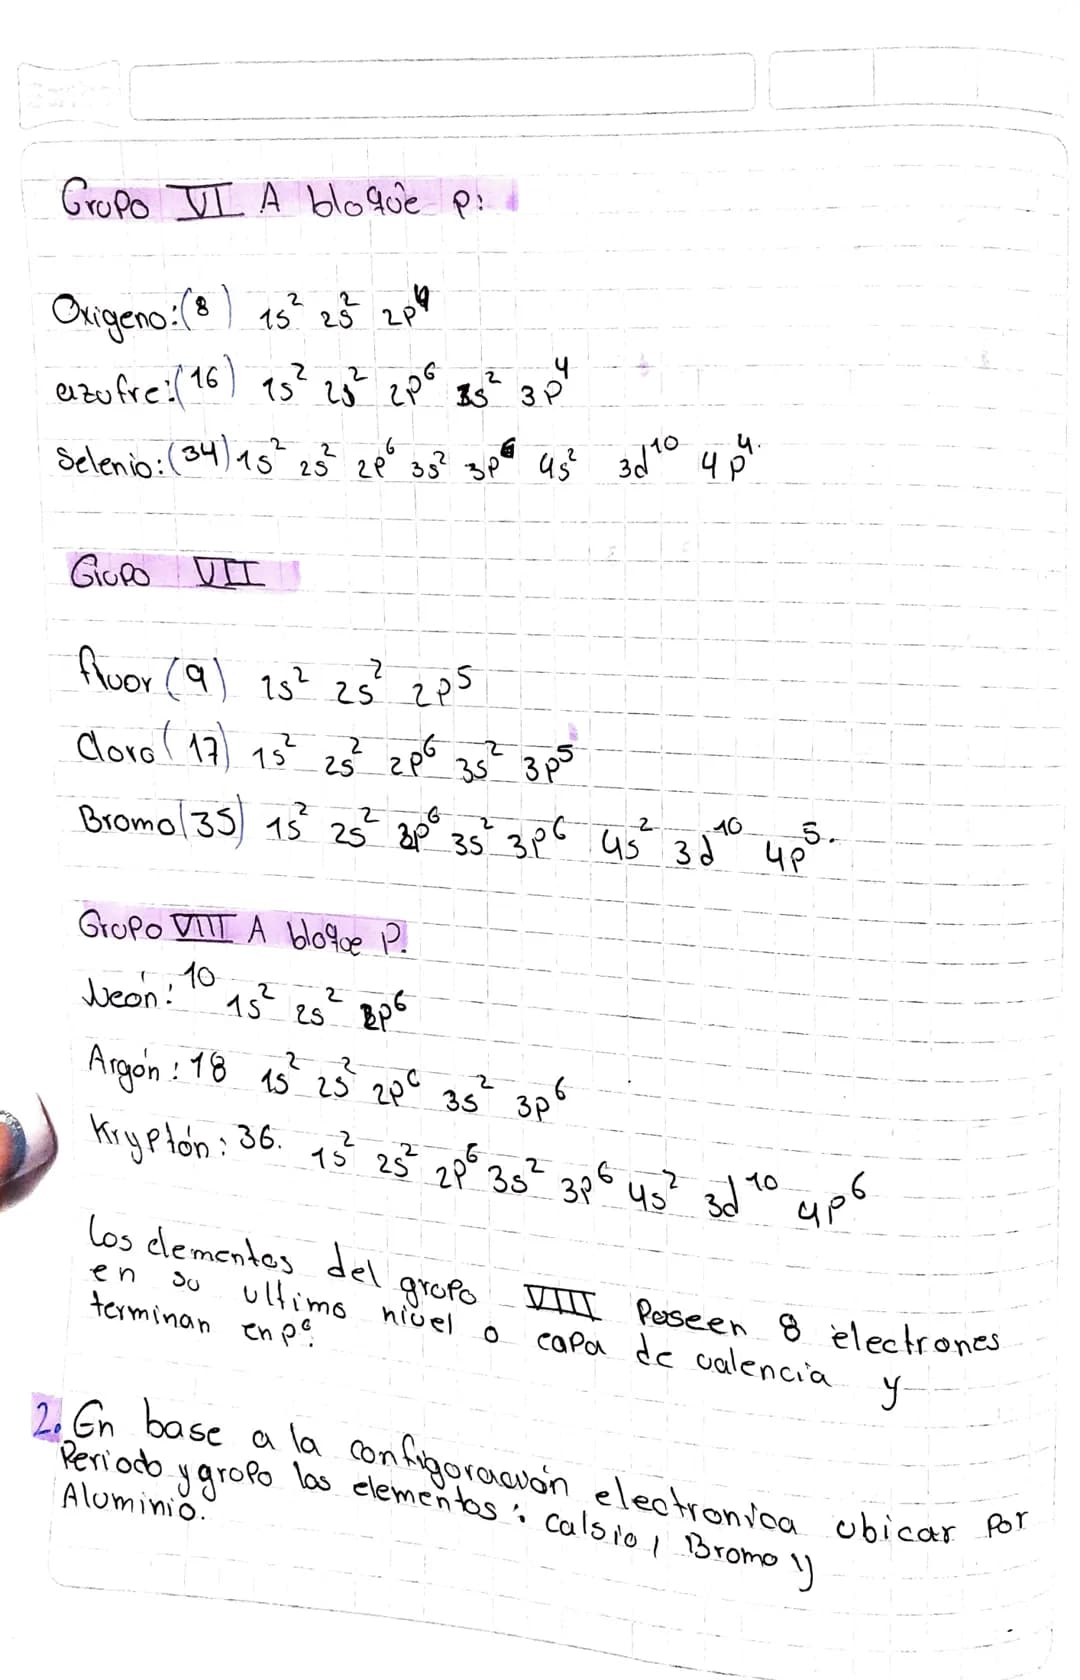 Grupo VI A bloque p:
Oxigeno:(8) 1s² 2s² 2p⁴
azufre:(16) 1s² 2s² 2p⁶ 3s² 3p⁴
Selenio:(34) 1s² 2s² 2p⁶ 3s² 3p⁶ 4s² 3d¹⁰ 4p⁴.
Grupo VII
fluor (9) 1s² 2s² 2p⁵
Cloro (17) 1s² 2s² 2p⁶ 3s² 3p⁵
Bromo (35) 1s² 2s² 2p⁶ 3s² 3p⁶ 4s² 3d¹⁰ 4p⁵.
Grupo VIII A bloque P.
Neón: 10 1s² 2s² 2p⁶
Argón: 18 1s² 2s² 2p⁶ 3s² 3p⁶
Kryptón: 36. 1s² 2s² 2p⁶ 3s² 3p⁶ 4s² 3d¹⁰ 4p⁶
Los elementos del grupo VIII Poseen 8 electrones
en su ultimo nivel o capa de valencia y
terminan en p⁶.
2. En base a la configuración electronica ubicar por
Periodo y grupo los elementos: calsio, Bromo y
Aluminio.